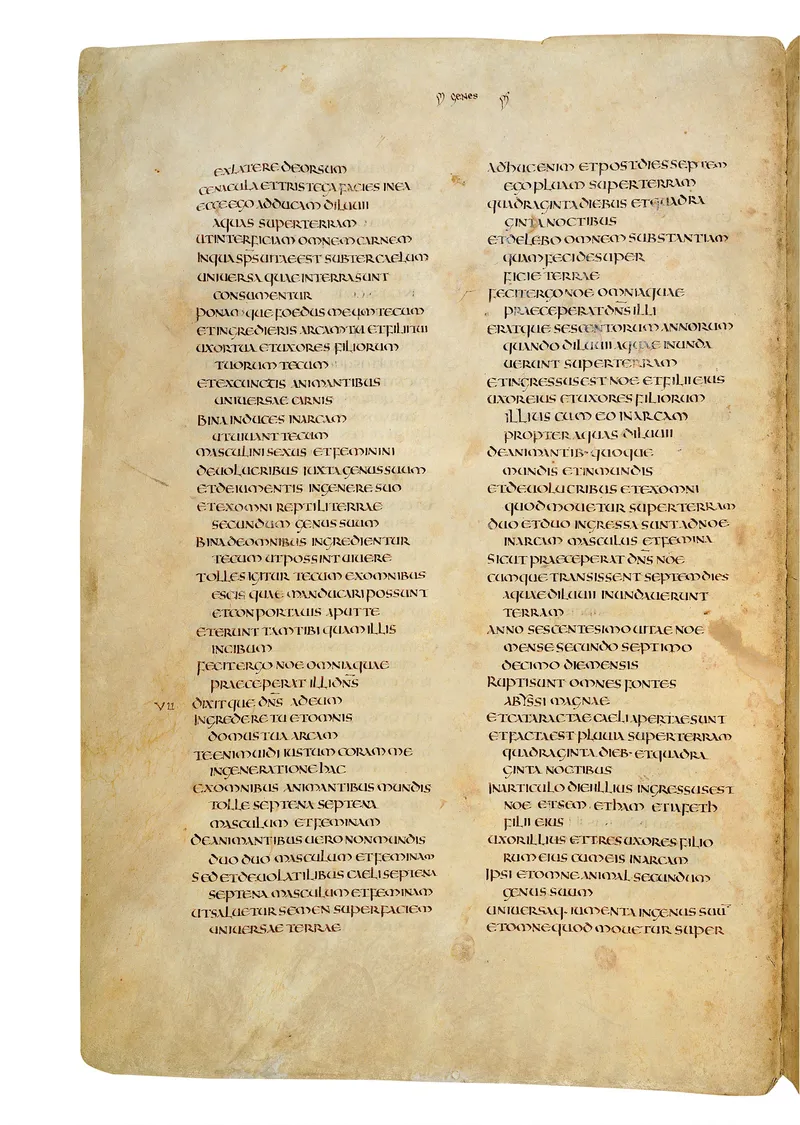 GENES
EX LATERE DEORSUM
CENACULA ET TRISTEGA FACIES IN EA
ECCE EGO ADDUCAM DILUUII
AQUAS SUPER TERRAM
UT INTERFICIAM OMNEM CARNEM
IN QUA SPS UITAE EST SUBTER CAELUM
UNIUERSA QUAE IN TERRA SUNT
CONSUMENTUR
PONAMQUE FOEDUS MEUM TECUM
ET INGREDIERIS ARCAM TU ET FILII TUI
UXOR TUA ET UXORES FILIORUM
TUORUM TECUM
ET EX CUNCTIS ANIMANTIBUS
UNIUERSAE CARNIS
BINA INDUCES IN ARCAM
UT UIUANT TECUM
MASCULINI SEXUS ET FEMININI
DE UOLUCRIBUS IUXTA GENUS SUUM
ET DE IUMENTIS IN GENERE SUO
ET EX OMNI REPTILI TERRAE
SECUNDUM GENUS SUUM
BINA DE OMNIBUS INGREDIENTUR
TECUM UT POSSINT UIUERE
TOLLES IGITUR TECUM EX OMNIBUS
ESCIS QUAE MANDUCARI POSSUNT
ET CONPORTAUIS APUT TE
ET ERUNT TAM TIBI QUAM ILLIS
IN CIBUM
FECIT ERGO NOE OMNIA QUAE
PRAECEPERAT ILLI DN̄S
VII DIXITQUE DN̄S AD EUM
INGREDERE TU ET OMNIS
DOMUS TUA ARCAM
TE ENIM UIDI IUSTUM CORAM ME
IN GENERATIONE HAC
EX OMNIBUS ANIMANTIBUS MUNDIS
TOLLE SEPTENA SEPTENA
MASCULUM ET FEMINAM
DE ANIMANTIBUS UERO NON MUNDIS
DUO DUO MASCULUM ET FEMINAM
SED ET DE UOLATILIBUS CAELI SEPTENA
SEPTENA MASCULUM ET FEMINAM
UT SALUETUR SEMEN SUPER FACIEM
UNIUERSAE TERRAE
ADHUC ENIM ET POST DIES SEPTEM
EGO PLUAM SUPER TERRAM
QUADRAGINTA DIEBUS ET QUADRA
GINTA NOCTIBUS
ET DELEBO OMNEM SUBSTANTIAM
QUAM FECI DE SUPER
FICIE TERRAE
FECIT ERGO NOE OMNIA QUAE
PRAECEPERAT DN̄S ILLI
ERATQUE SESCENTORUM ANNORUM
QUANDO DILUUII AQUAE INUNDA
UERUNT SUPER TERRAM
ET INGRESSUS EST NOE ET FILII EIUS
UXOR EIUS ET UXORES FILIORUM
ILLIUS CUM EO IN ARCAM
PROPTER AQUAS DILUUII
DE ANIMANTIB· QUOQUE
MUNDIS ET INMUNDIS
ET DE UOLUCRIBUS ET EX OMNI
QUOD MOUETUR SUPER TERRAM
DUO ET DUO INGRESSA SUNT AD NOE
IN ARCAM MASCULUS ET FEMINA
SICUT PRAECEPERAT DN̄S NOE
CUMQUE TRANSISSENT SEPTEM DIES
AQUAE DILUUII INUNDAUERUNT
TERRAM
ANNO SESCENTESIMO UITAE NOE
MENSE SECUNDO SEPTIMO
DECIMO DIE MENSIS
RUPTI SUNT OMNES FONTES
ABYSSI MAGNAE
ET CATARACTAE CAELI APERTAE SUNT
ET FACTA EST PLUUIA SUPER TERRAM
QUADRAGINTA DIEB· ET QUADRA
GINTA NOCTIBUS
IN ARTICULO DIEI ILLIUS INGRESSUS EST
NOE ET SEM ET HAM ET IAFETH
FILII EIUS
UXOR ILLIUS ET TRES UXORES FILIO
RUM EIUS CUM EIS IN ARCAM
IPSI ET OMNE ANIMAL SECUNDUM
GENUS SUUM
UNIUERSAQ· IUMENTA IN GENUS SUŪ
ET OMNE QUOD MOUETUR SUPER